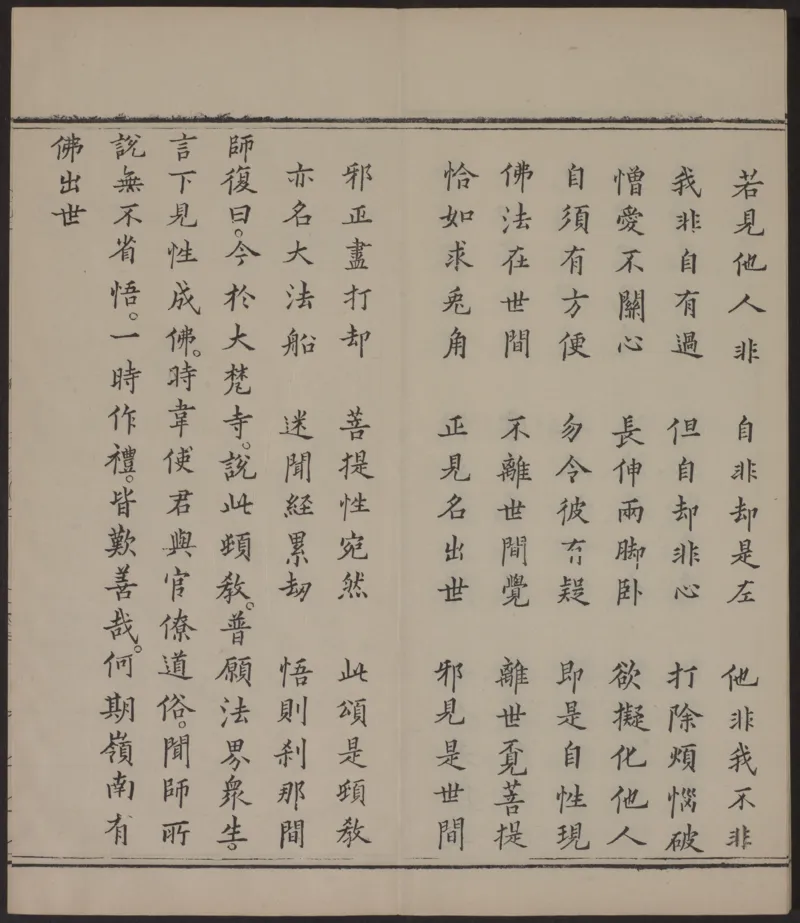 若見他人非　自非却是左　他非我不非
我非自有過　但自却非心　打除煩惱破
憎愛不關心　長伸兩脚卧　欲擬化他人
自須有方便　勿令彼有疑　即是自性現
佛法在世間　不離世間覺　離世覓菩提
恰如求兎角　正見名出世　邪見是世間
邪正盡打却　菩提性宛然　此頌是頓教
亦名大法船　迷聞經累劫　悟則刹那間
師復曰。今於大梵寺。說此頓教。普願法界衆生。
言下見性成佛。時韋使君與官僚道俗。聞師所
說無不省悟。一時作禮。皆歎善哉。何期嶺南有
佛出世